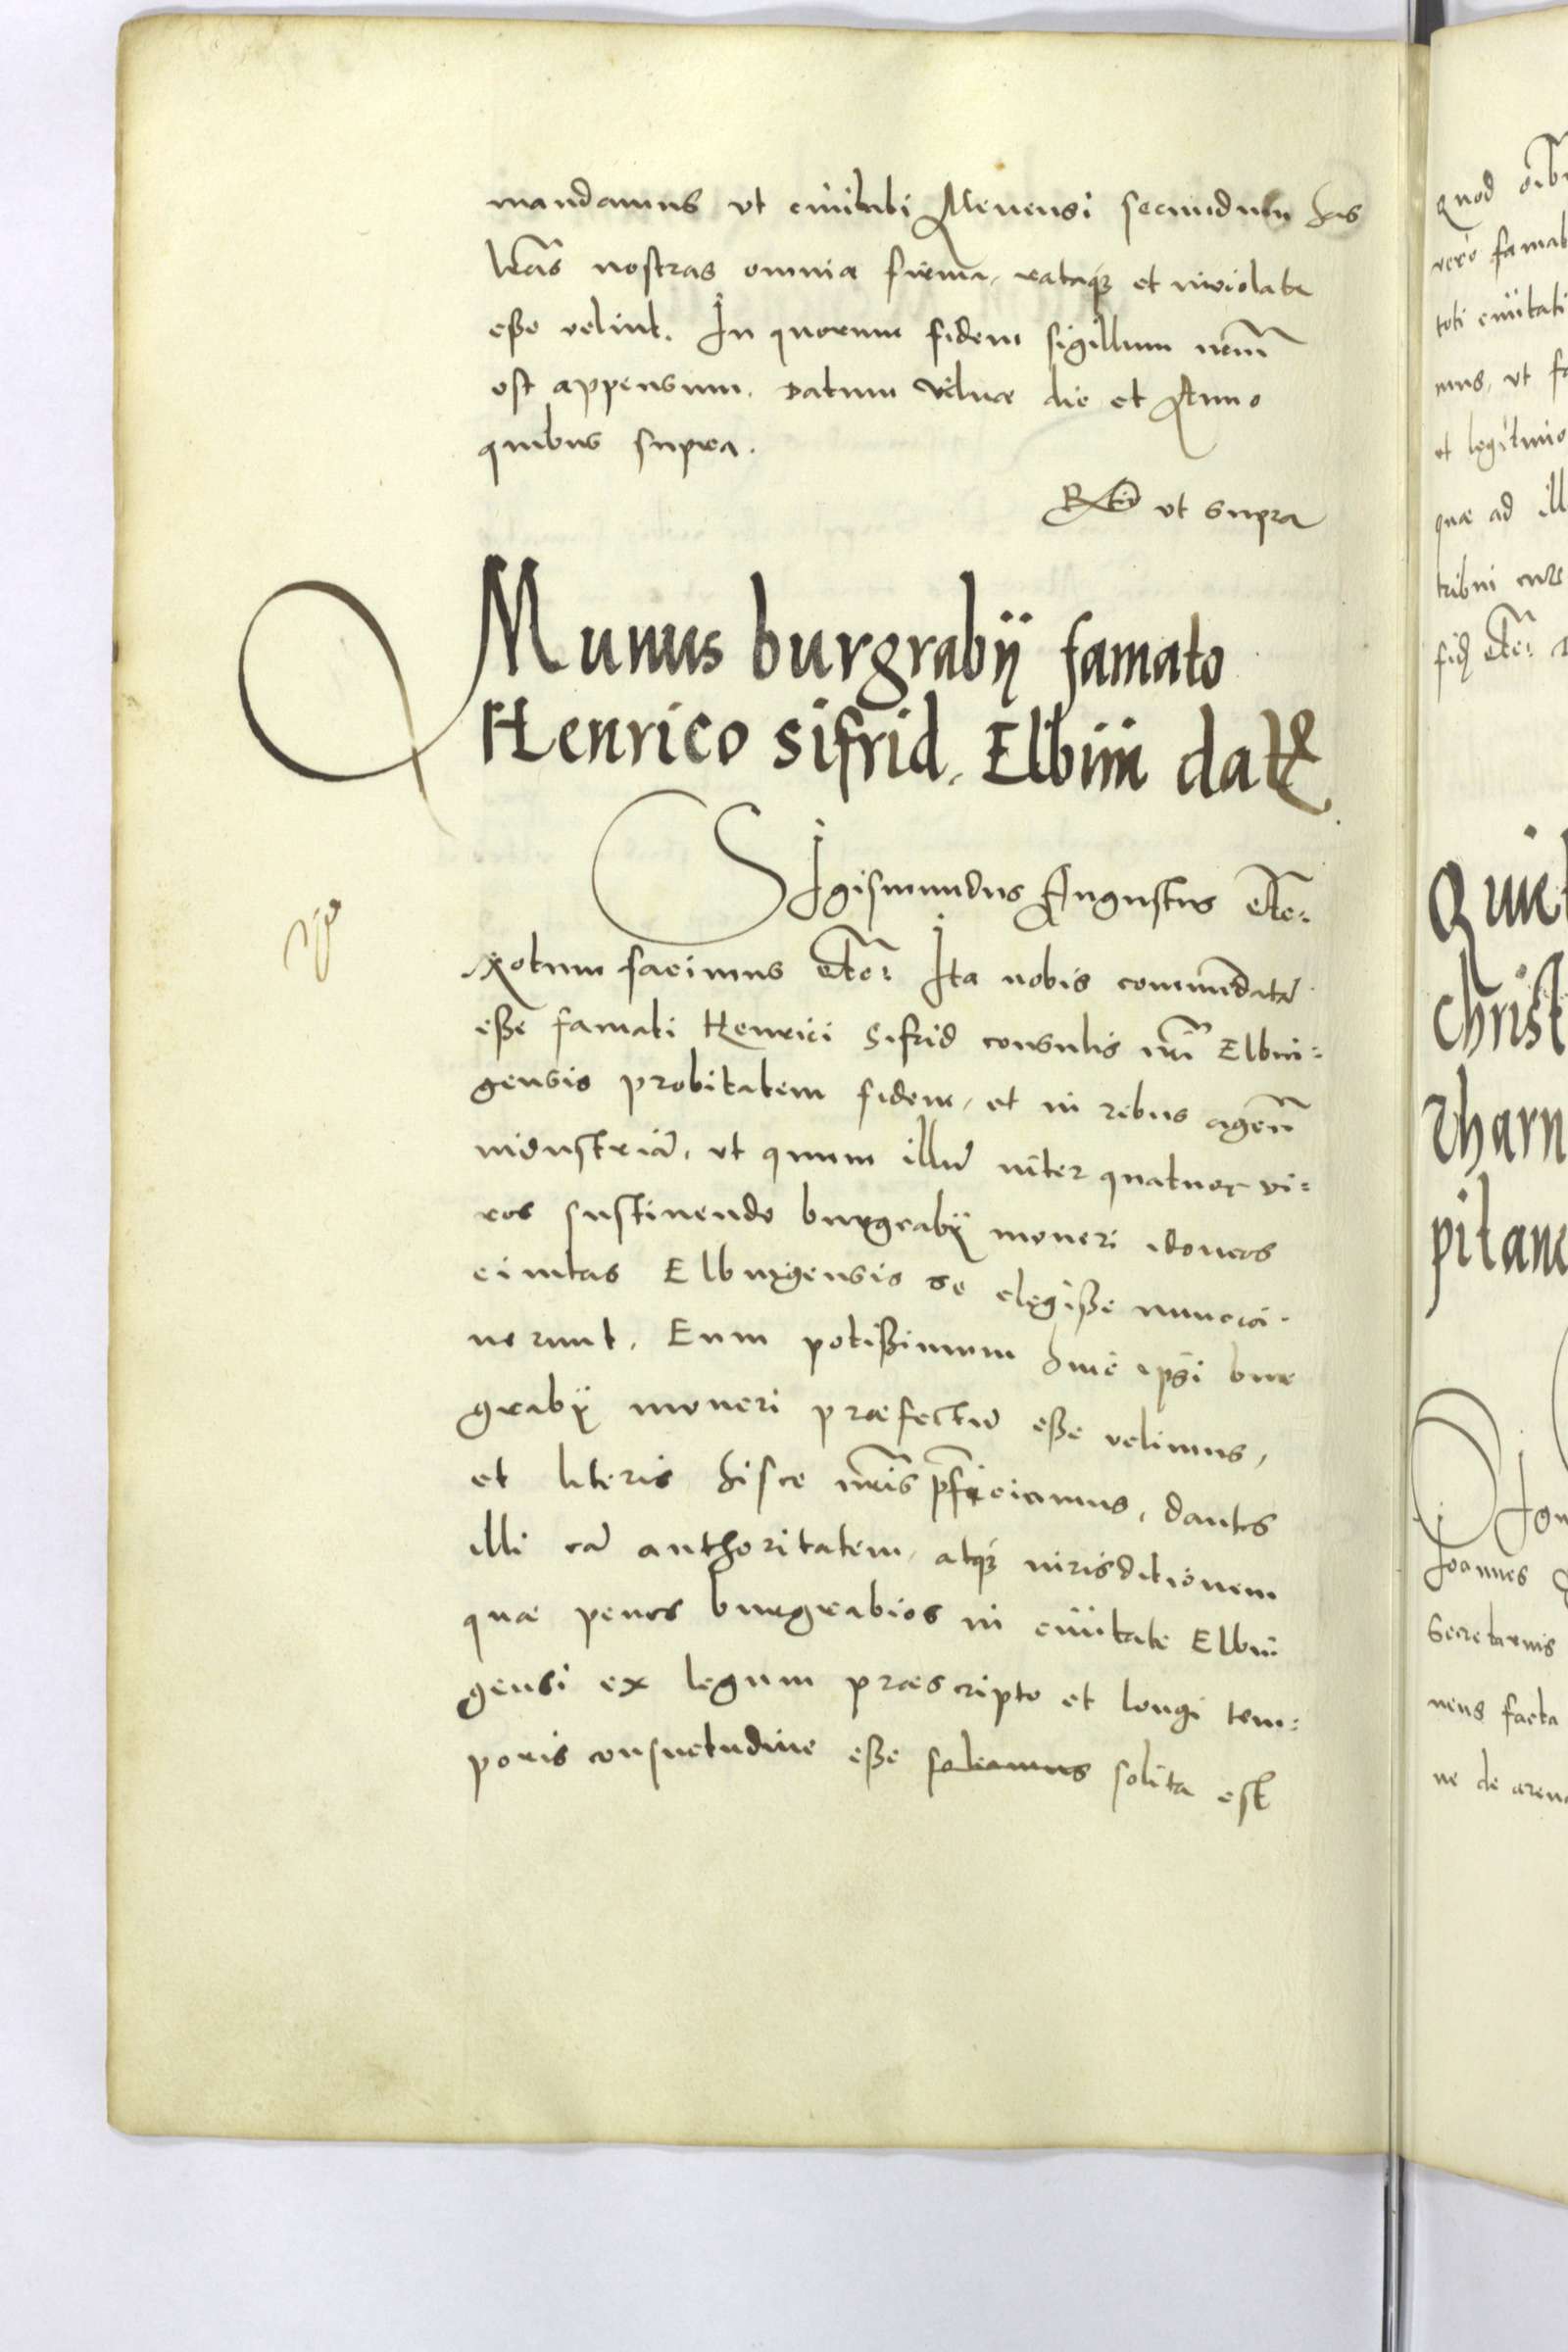 mandamus vt ciuitati Meuensi secundum has
lr̃as nostras omnia firma, rataqꝫ et inviolata
esse velint. In quorum fidem sigillum nr̃m
est appensum. Datum Vilnae die et Anno
quibus supra.
vt supra
Munus burgrabij famato
Henrico sifrid. Elbing̃ datꝭ
SIgismundus Augustus etc̃:
Notum facimus etc̃: Ita nobis commendatã
esse famati Henrici Sifrid consulis nr̃i Elbin=
gensis probitatem fidem, et in rebus agen̄
industriã, vt quum illũ inter quatuor vi=
ros sustinendo burgrabij moneri idoneos
ciuitas Elbingensis se elegisse nuncia=
uerunt. Eum potissimum huic ipsi bur
grabij moneri praefectũ esse velimus,
et literis hisce nr̃is p̃ficiamus, dantes
illi eã authoritatem, atqꝫ iurisditionem
quae penes burgrabios in ciuitate Elbin
gensi ex legum praescripto et longi tem=
poris consuetudine esse soleamus solita est
quod oib
vero famat
toti ciuitati
mus, vt fa
et legitimo
quae ad ill
tribui
fid etc̃:
Quit
Christ
Tharn
pitane
Joannes
Secretarius
nens facta
ne de arena